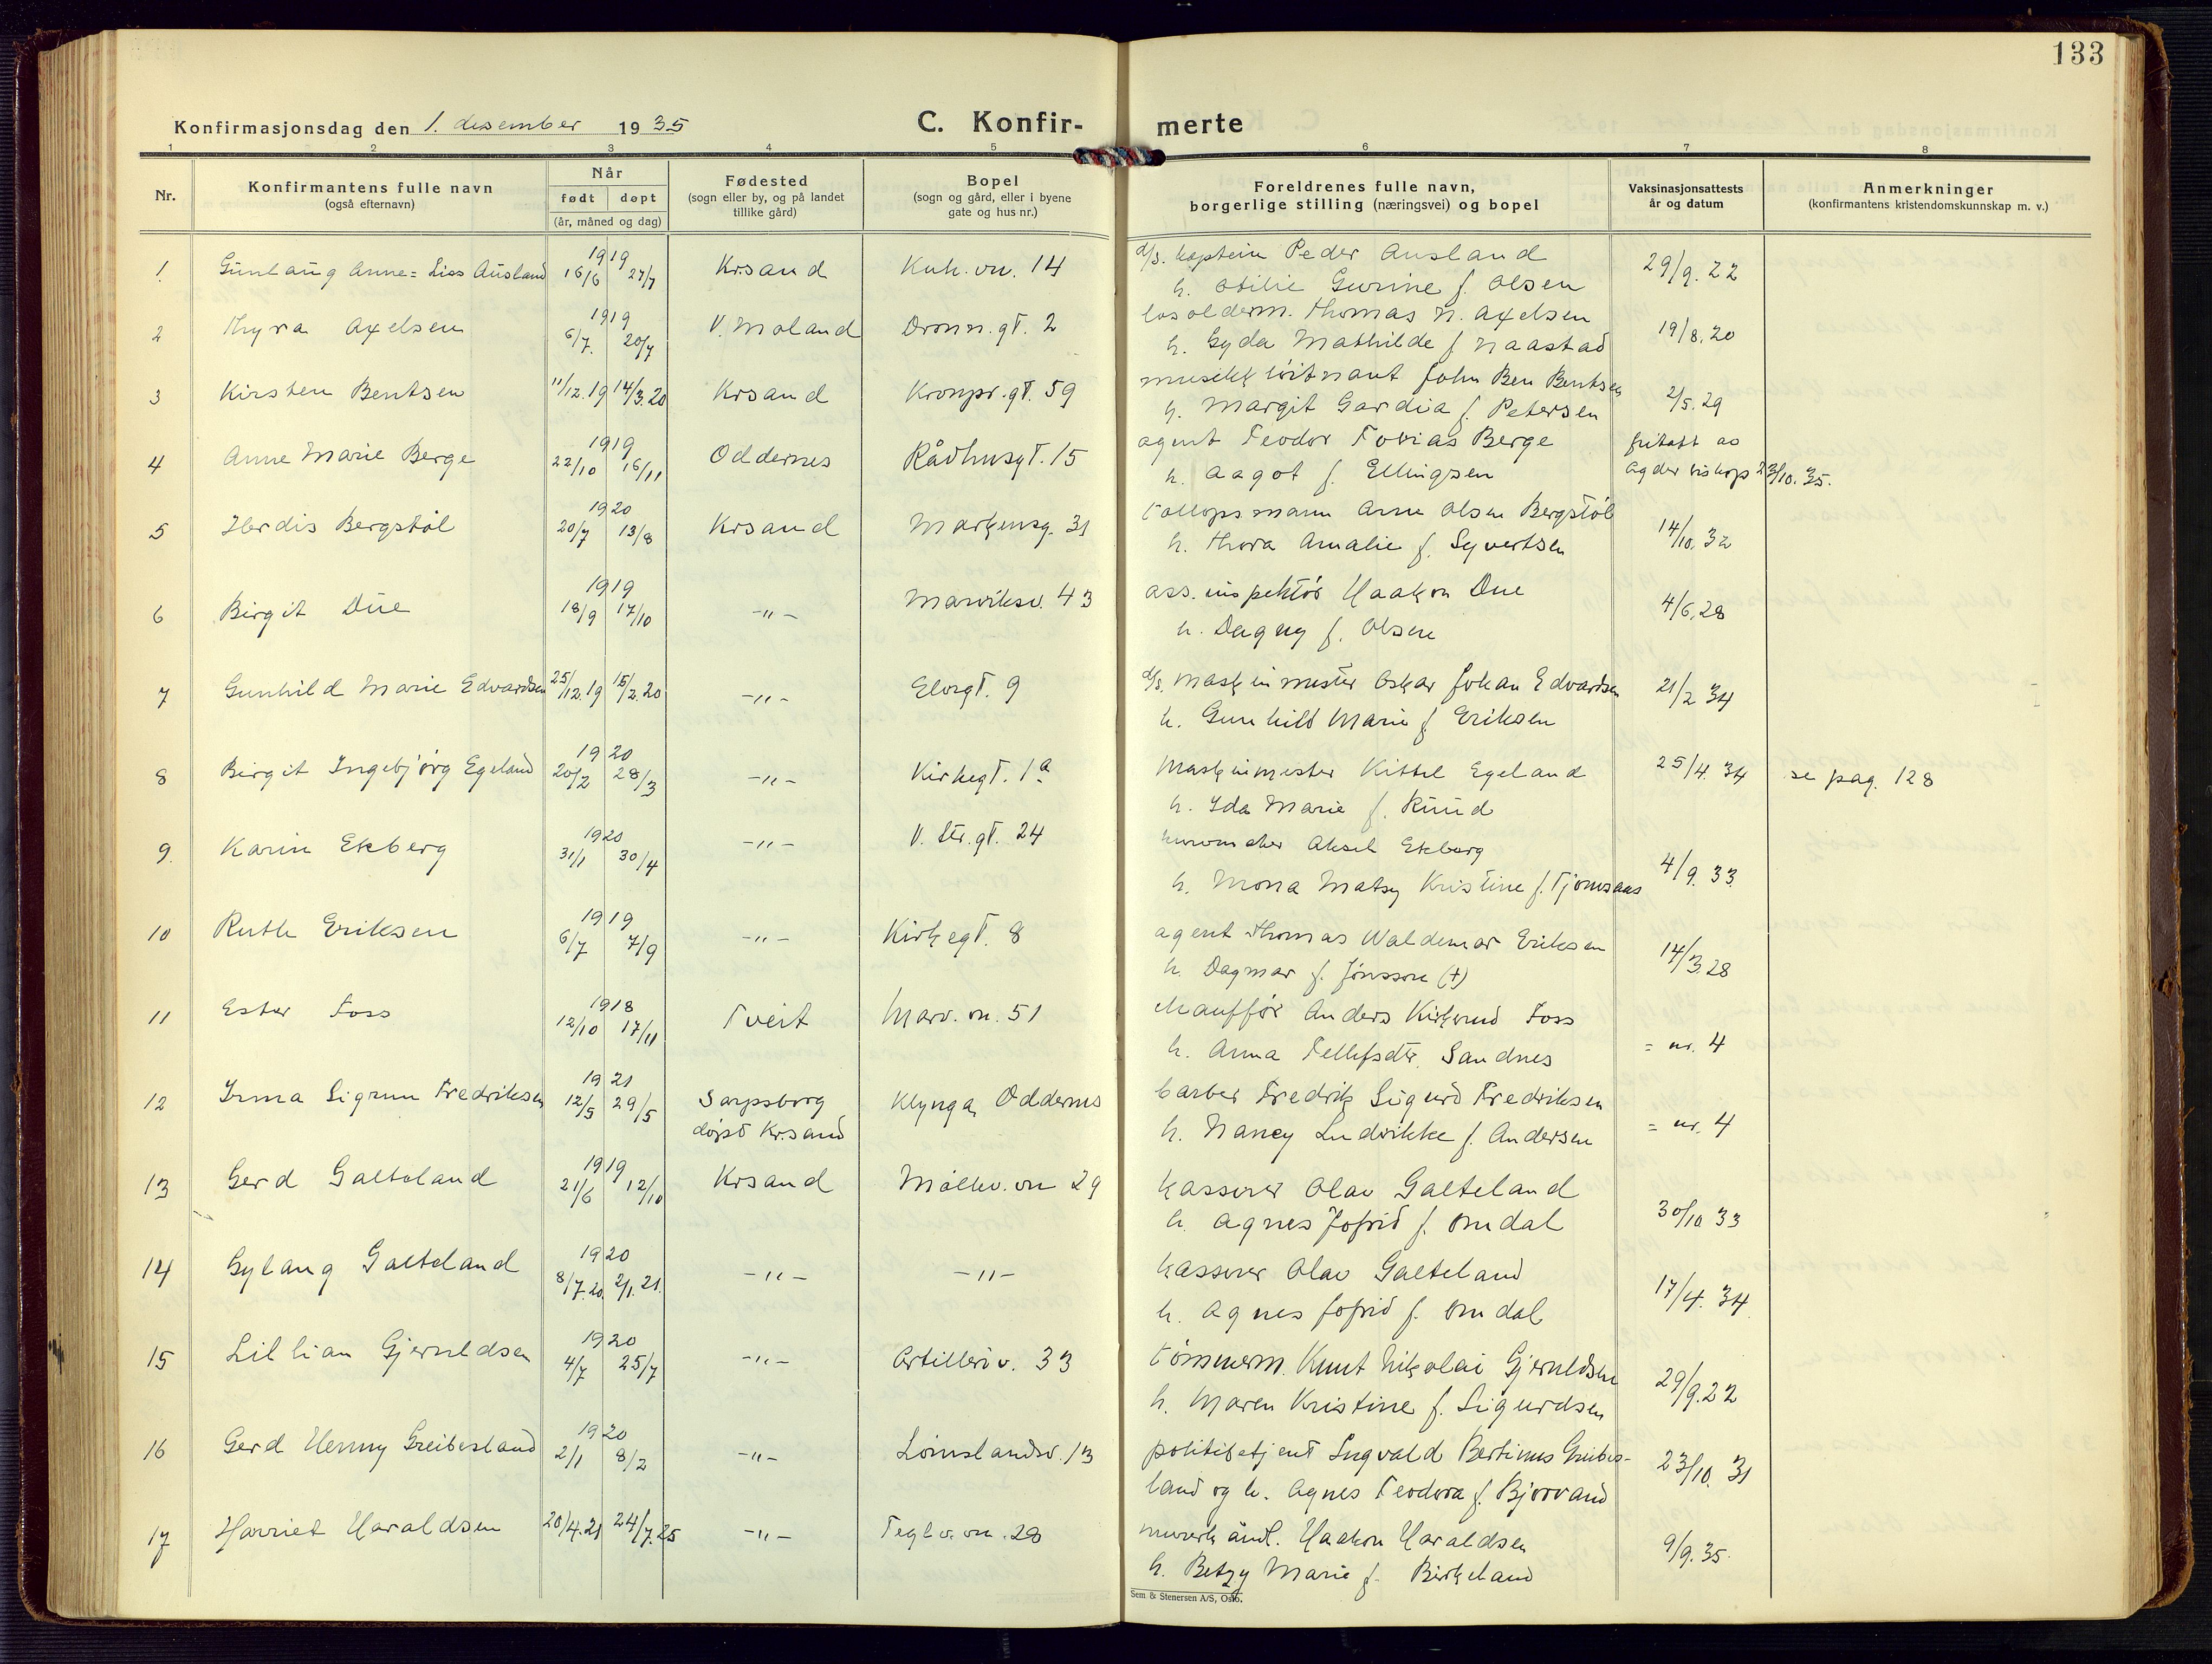 133
Konfirmasjonsdag den 1. desember 1935
C. Konfir- merte
1 2 3 4 5 6 7 8
Nr.
Konfirmantens fulle navn
(også efternavn)
Når
født døpt
(år, måned og dag)
Fødested
(sogn eller by, og på landet
tillike gård)
Bopel
(sogn og gård, eller i byene
gate og hus nr.)
Foreldrenes fulle navn,
borgerlige stilling (næringsvei) og bopel
Vaksinasjonsattests
år og datum
Anmerkninger
(konfirmantens kristendomskunnskap m. v.)
1 Gunlaug Anne=Liss Ausland 1919 16/6 27/7 Krsand Kuh. vn. 14 d/s. kaptein Peder Ausland 29/9. 22
h. Otilie Gurine f. Olsen
2 Thyra Axelsen 1919 6/7. 20/7 V. Moland Dronn. gt. 2 losolderm. Thomas N. Axelsen 19/8. 20
h. Gyda Mathilde f Naastad
3 Kirsten Bentsen 11/12. 19 14/3. 20 Krsand Kronpr. gt. 59 musikkløitnant John Ben Bentsen 2/5. 29
h. Margit Gardia f. Petersen
4 Anne Marie Berge 1919 22/10 16/11 Oddernes Rådhusgt. 15 agent Teodor Tobias Berge fritatt av
h. Aagot f. Ellingsen Agder biskop 23/10. 35.
5 Herdis Bergstøl 1920 20/7 13/8 Krsand Markensg. 31 Tollopsmann Arne Olsen Bergstøl 14/10. 32
h. Thora Amalie f. Syvertsen
6 Birgit Due 1919 18/9 17/10 -"- Marviksv. 43 ass. inspektør Haakon Due 4/6. 28
h. Dagny f. Olsen
7 Gunhild Marie Edvardsen 25/12. 19 15/2. 20 -"- Elvegt. 9 d/s. maskinmester Oskar Johan Edvardsen 21/2 34
h. Gunhild Marie f Eriksen
8 Birgit Ingebjørg Egeland 1920 20/2 28/3 -"- Kirkegt. 1a Maskinmester Kittel Egeland 25/4. 34 se pag. 128
h. Ida Marie f. Ruud
9. Karin Ekberg 1920 31/1 30/4 -"- V. Str. gt. 24 Aksel Ekberg 4/9. 33.
h. Mona Kristine f. Tjomsaas
10 Ruth Eriksen 1919 6/7 7/9 -"- Kirkegt. 8 agent Thomas Waldemar Eriksen 14/3. 28
h. Dagmar f. Jonsson (+)
11 Ester Foss 1918 12/10 17/11 Tveit Marv. vn. 51 chauffør Anders Kirkerud Foss
h. Anna Tellefsdtr. Sandnes = nr. 4
12 Irma Sigrun Fredriksen 1921 12/5 29/5 Sarpsborg Klynga, Oddernes barber Fredrik Sigurd Fredriksen
døpt Kr.sand h. Nancy Ludvikke f. Andersen = nr. 4
13 Gerd Galteland 1919 21/6 12/10 Krsand Møllev. vn 29 kasserer Olav Galteland
h. Agnes Jofrid f. Omdal 30/10 33
14 Gylaug Galteland 1920 8/7. 20. 2/1. 21. -"- -"- kasserer Olav Galteland
h. Agnes Jofrid f. Omdal 17/4. 34
15 Lillian Gjeruldsen 1920 4/7 25/7 -"- Artilleriv. 33 tømmerm. Knut Nikolai Gjeruldsen
h. Maren Kristine f. Sigurdsen 29/9. 22
16 Gerd Henny Greibesland 1920 2/1 8/2 -"- Lømslandsv. 13 politibetjent Ingvald Bertinus Greibes-
land og h. Agnes Teodora f. Bjorvand 23/10. 31
17 Harriet Haraldsen 20/4. 21 24/7. 25 -"- Teglv. vn. 28 Haakon Haraldsen 9/9. 35.
h. Betzy Marie f. Birkeland
Sem & Stenersen A/S, Oslo.